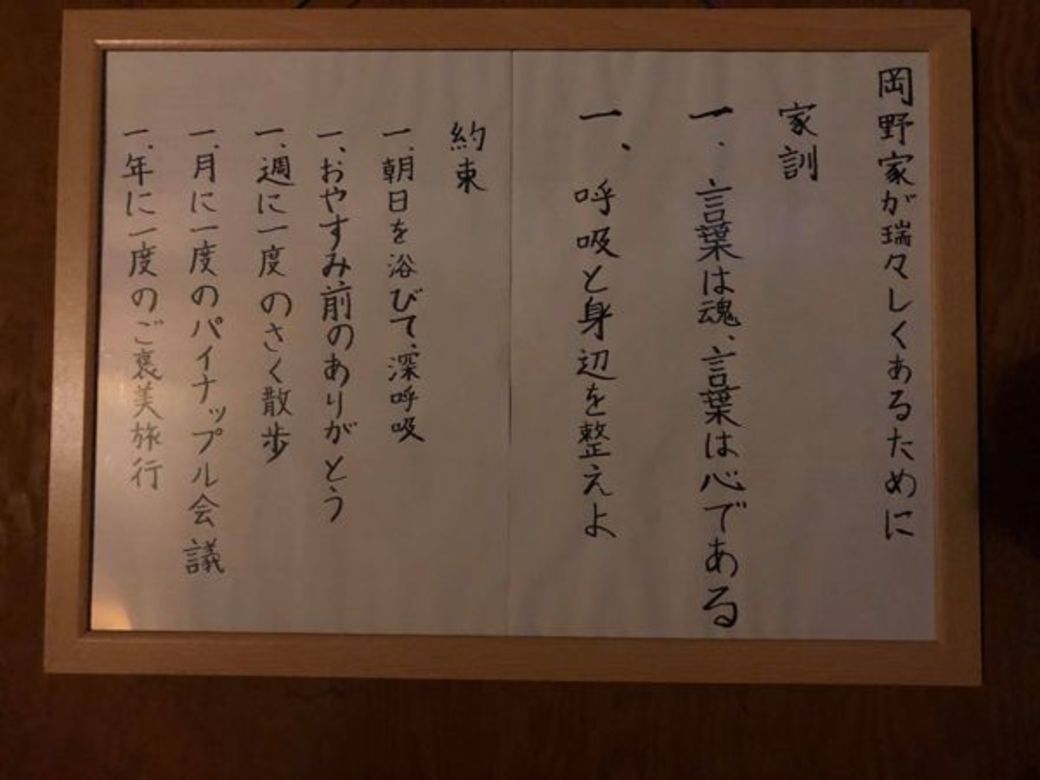 岡野家が瑞々しくあるために
家訓
一、言葉は魂、言葉は心である
一、呼吸と身辺を整えよ
約束
一、朝日を浴びて、深呼吸
一、おやすみ前のありがとう
一、週に一度のさく散歩
一、月に一度のパイナップル会議
一、年に一度のご褒美旅行